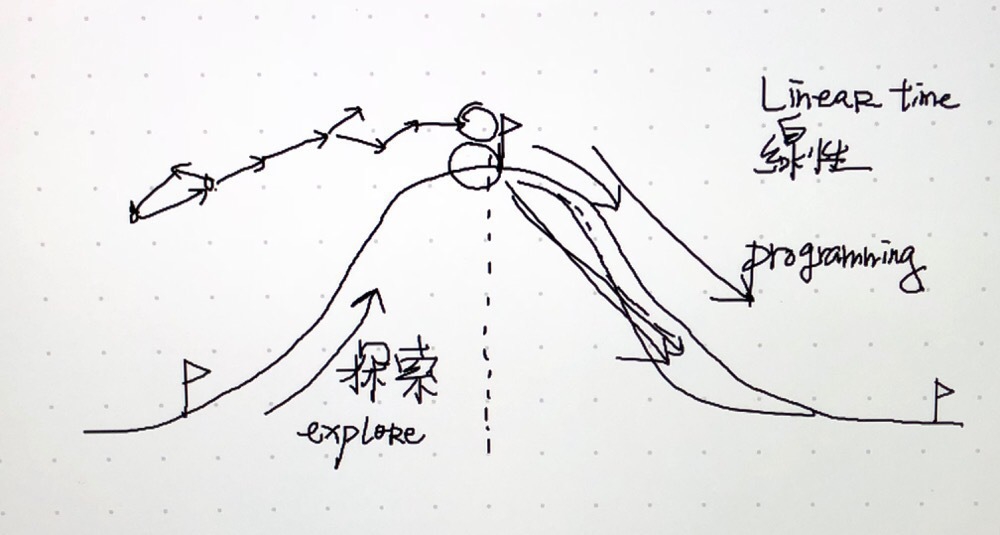 Linear time
線性
programming
探索
explore